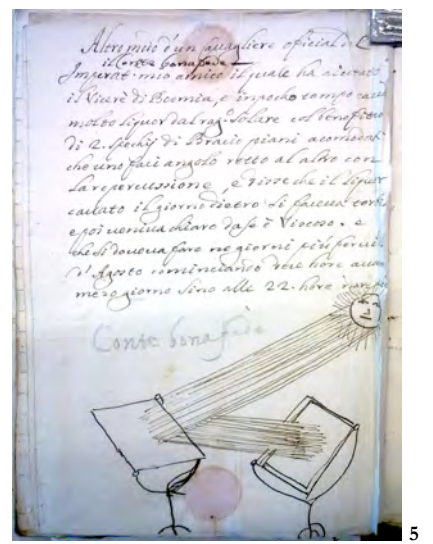 Altro modo d'un cavagliere oficial di C
il Conte bonafede
Imperat. mio amico il quale ha
il Vicerè di Boemia, e in pocho tempo
molto liquor dal rag. Solare col benefitio
di 2. Spechij di Bracio piani acomodati
che uno faci angolo retto al altro con
la repercussione, e disse che il liquor
cauato il giorno dietro si faceua
e poi veniua chiaro da se è Viscoso. e
che si doueua fare ne giorni più
d'Agosto cominciando due hore
mezo giorno sino alle 22. hore
Conte bonafede
5